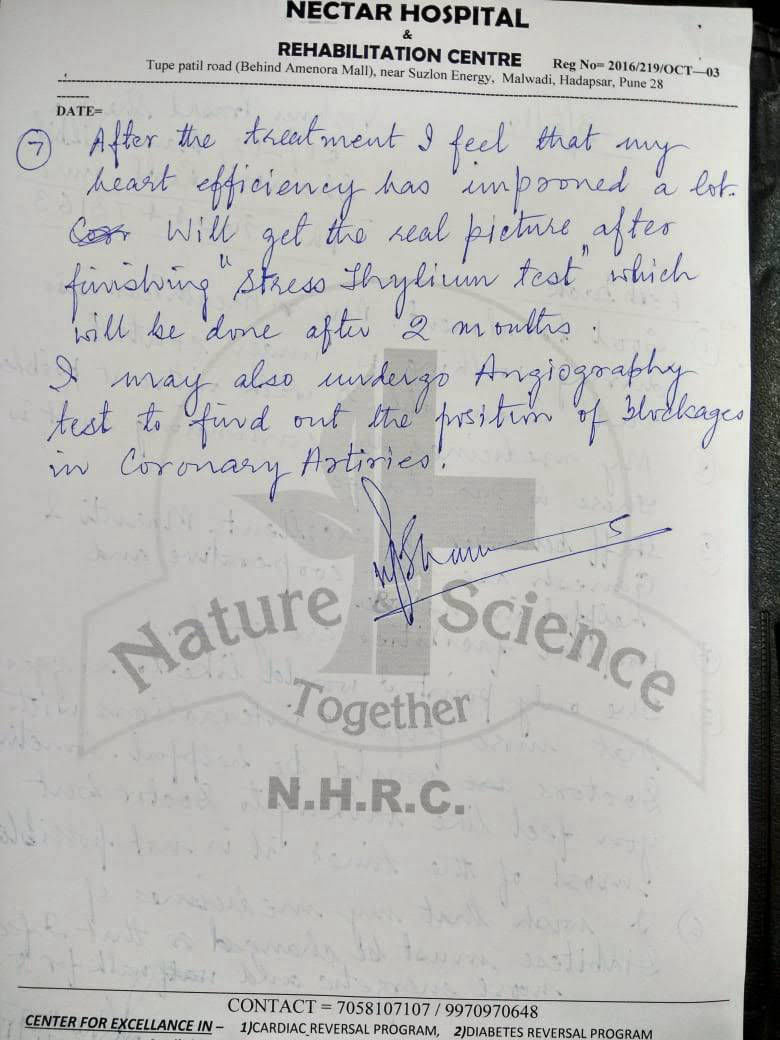 NECTAR HOSPITAL
&
REHABILITATION CENTRE
Reg No= 2016/219/OCT—03
Tupe patil road (Behind Amenora Mall), near Suzlon Energy, Malwadi, Hadapsar, Pune 28
DATE=
7 After the treatment I feel that my
heart efficiency has improned a lot.
Will get the real picture after
finishing "Stress Thylium test" which
will be done after 2 months.
I may also undergo Angiography
test to find out the position of blockages
in Coronary Artiries.
Nature & Science
Together
N.H.R.C.
CONTACT = 7058107107 / 9970970648
CENTER FOR EXCELLANCE IN – 1)CARDIAC REVERSAL PROGRAM, 2)DIABETES REVERSAL PROGRAM